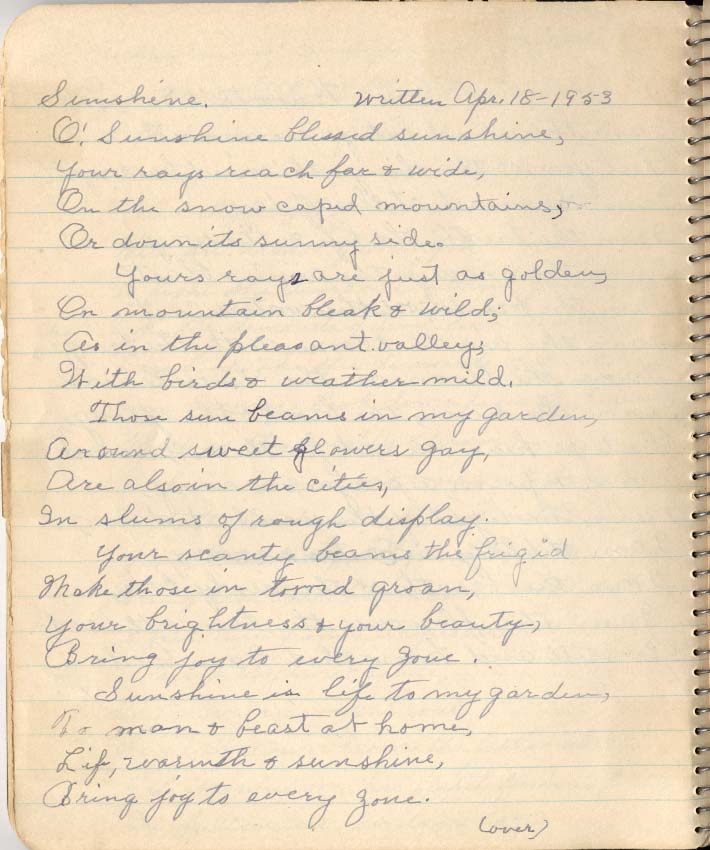 Sunshine. Written Apr. 18-1953
O! Sunshine blessed sunshine,
Your rays reach far & wide,
On the snow caped mountains,
Or down its sunny side.
Yours rays are just as golden,
On mountain bleak & wild;
As in the pleasant valley;
With birds & weather mild.
Those sun beams in my garden,
Around sweet flowers gay,
Are also in the cities,
In slums of rough display.
Your scanty beams the frigid
Make those in torrid groan,
Your brightness & your beauty,
Bring joy to every zone.
Sunshine is life to my garden,
To man & beast at home,
Lif, warmth & sunshine,
Bring joy to every zone.
(over)